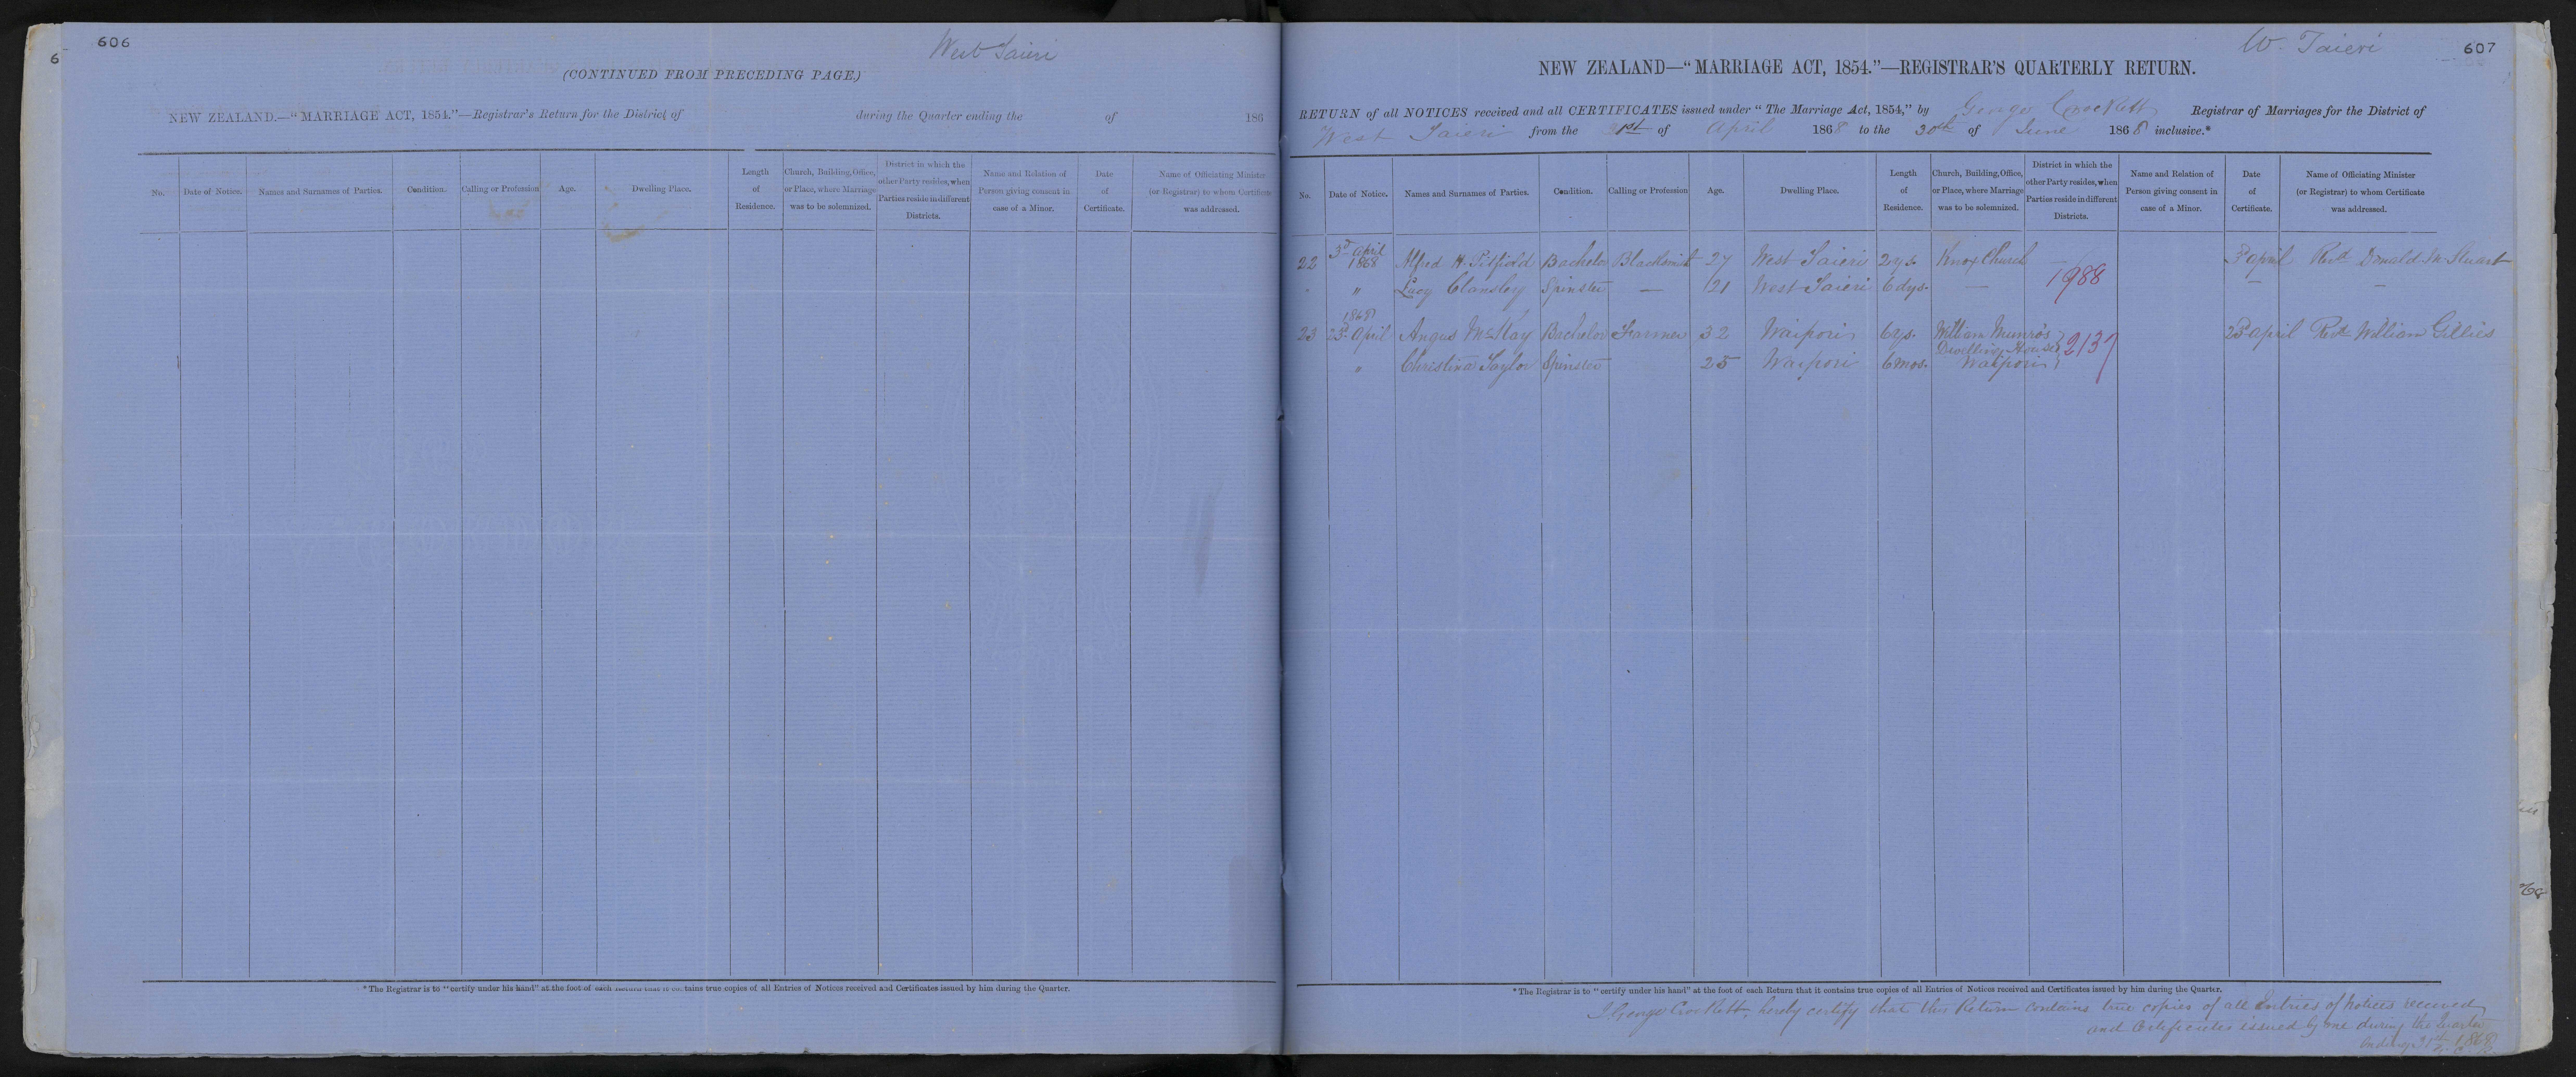 606
West Taieri
(CONTINUED FROM PRECEDING PAGE.)
NEW ZEALAND.—"MARRIAGE ACT, 1854."—Registrar's Return for the District of during the Quarter ending the of 186
No. Date of Notice. Names and Surnames of Parties. Condition. Calling or Profession Age. Dwelling Place. Length of Residence. Church, Building, Office, or Place, where Marriage was to be solemnized. District in which the other Party resides, when Parties reside in different Districts. Name and Relation of Person giving consent in case of a Minor. Date of Certificate. Name of Officiating Minister (or Registrar) to whom Certificate was addressed.
* The Registrar is to "certify under his hand" at the foot of each Return that it contains true copies of all Entries of Notices received and Certificates issued by him during the Quarter.
W. Taieri
607
NEW ZEALAND—"MARRIAGE ACT, 1854."—REGISTRAR'S QUARTERLY RETURN.
RETURN of all NOTICES received and all CERTIFICATES issued under "The Marriage Act, 1854," by George Crockett Registrar of Marriages for the District of
West Taieri from the of April 1868 to the 30th of June 1868 inclusive.*
No. Date of Notice. Names and Surnames of Parties. Condition. Calling or Profession Age. Dwelling Place. Length of Residence. Church, Building, Office, or Place, where Marriage was to be solemnized. District in which the other Party resides, when Parties reside in different Districts. Name and Relation of Person giving consent in case of a Minor. Date of Certificate. Name of Officiating Minister (or Registrar) to whom Certificate was addressed.
22 3d April 1868 Alfred H. Titfield Bachelor Blacksmith 27 West Taieri 2 ys. Knox Church — 3d April Revd Donald M. Stuart
" Lucy Clansley Spinster — 21 West Taieri 6 dys. — 1988 — —
1868
23 23d April Angus McKay Bachelor Farmer 32 Waipori 6 ys. William Munro's Dwelling House 2137 23d April Revd William Gillies
" Christina Taylor Spinster 25 Waipori 6 mos. Waipori
* The Registrar is to "certify under his hand" at the foot of each Return that it contains true copies of all Entries of Notices received and Certificates issued by him during the Quarter.
I George Crockett, hereby certify that this Return contains true copies of all Entries of Notices received
and Certificates issued by me during the Quarter
ending 1868